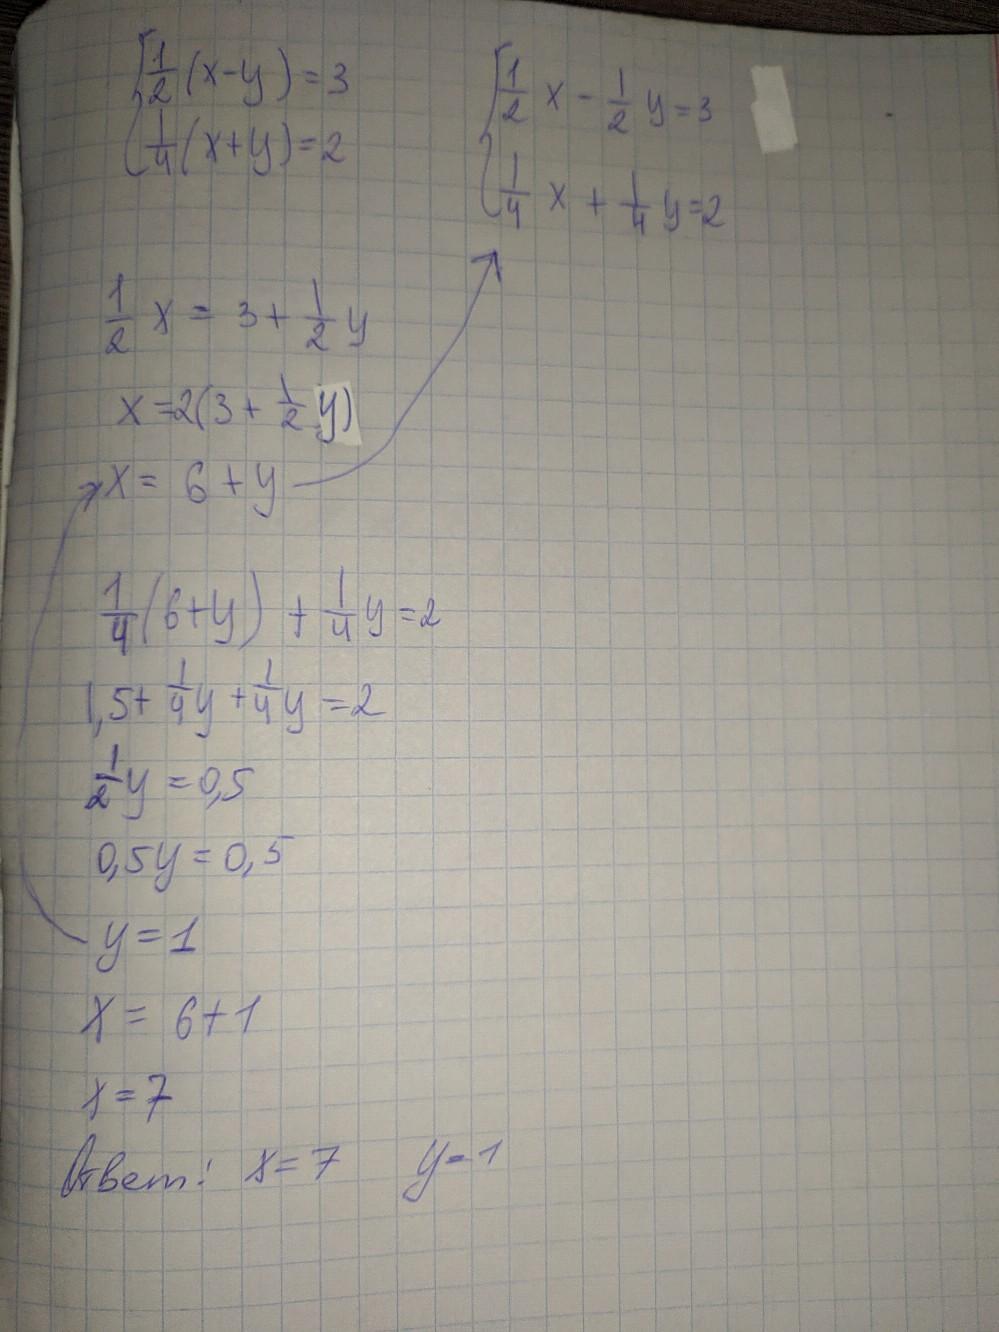 1/2 (x-y) = 3
1/4 (x+y) = 2
1/2 x - 1/2 y = 3
1/4 x + 1/4 y = 2
1/2 x = 3 + 1/2 y
x = 2(3 + 1/2 y)
x = 6 + y
1/4 (6+y) + 1/4 y = 2
1,5 + 1/4 y + 1/4 y = 2
1/2 y = 0,5
0,5y = 0,5
y = 1
x = 6+1
x = 7
Ответ: x = 7 y = 1